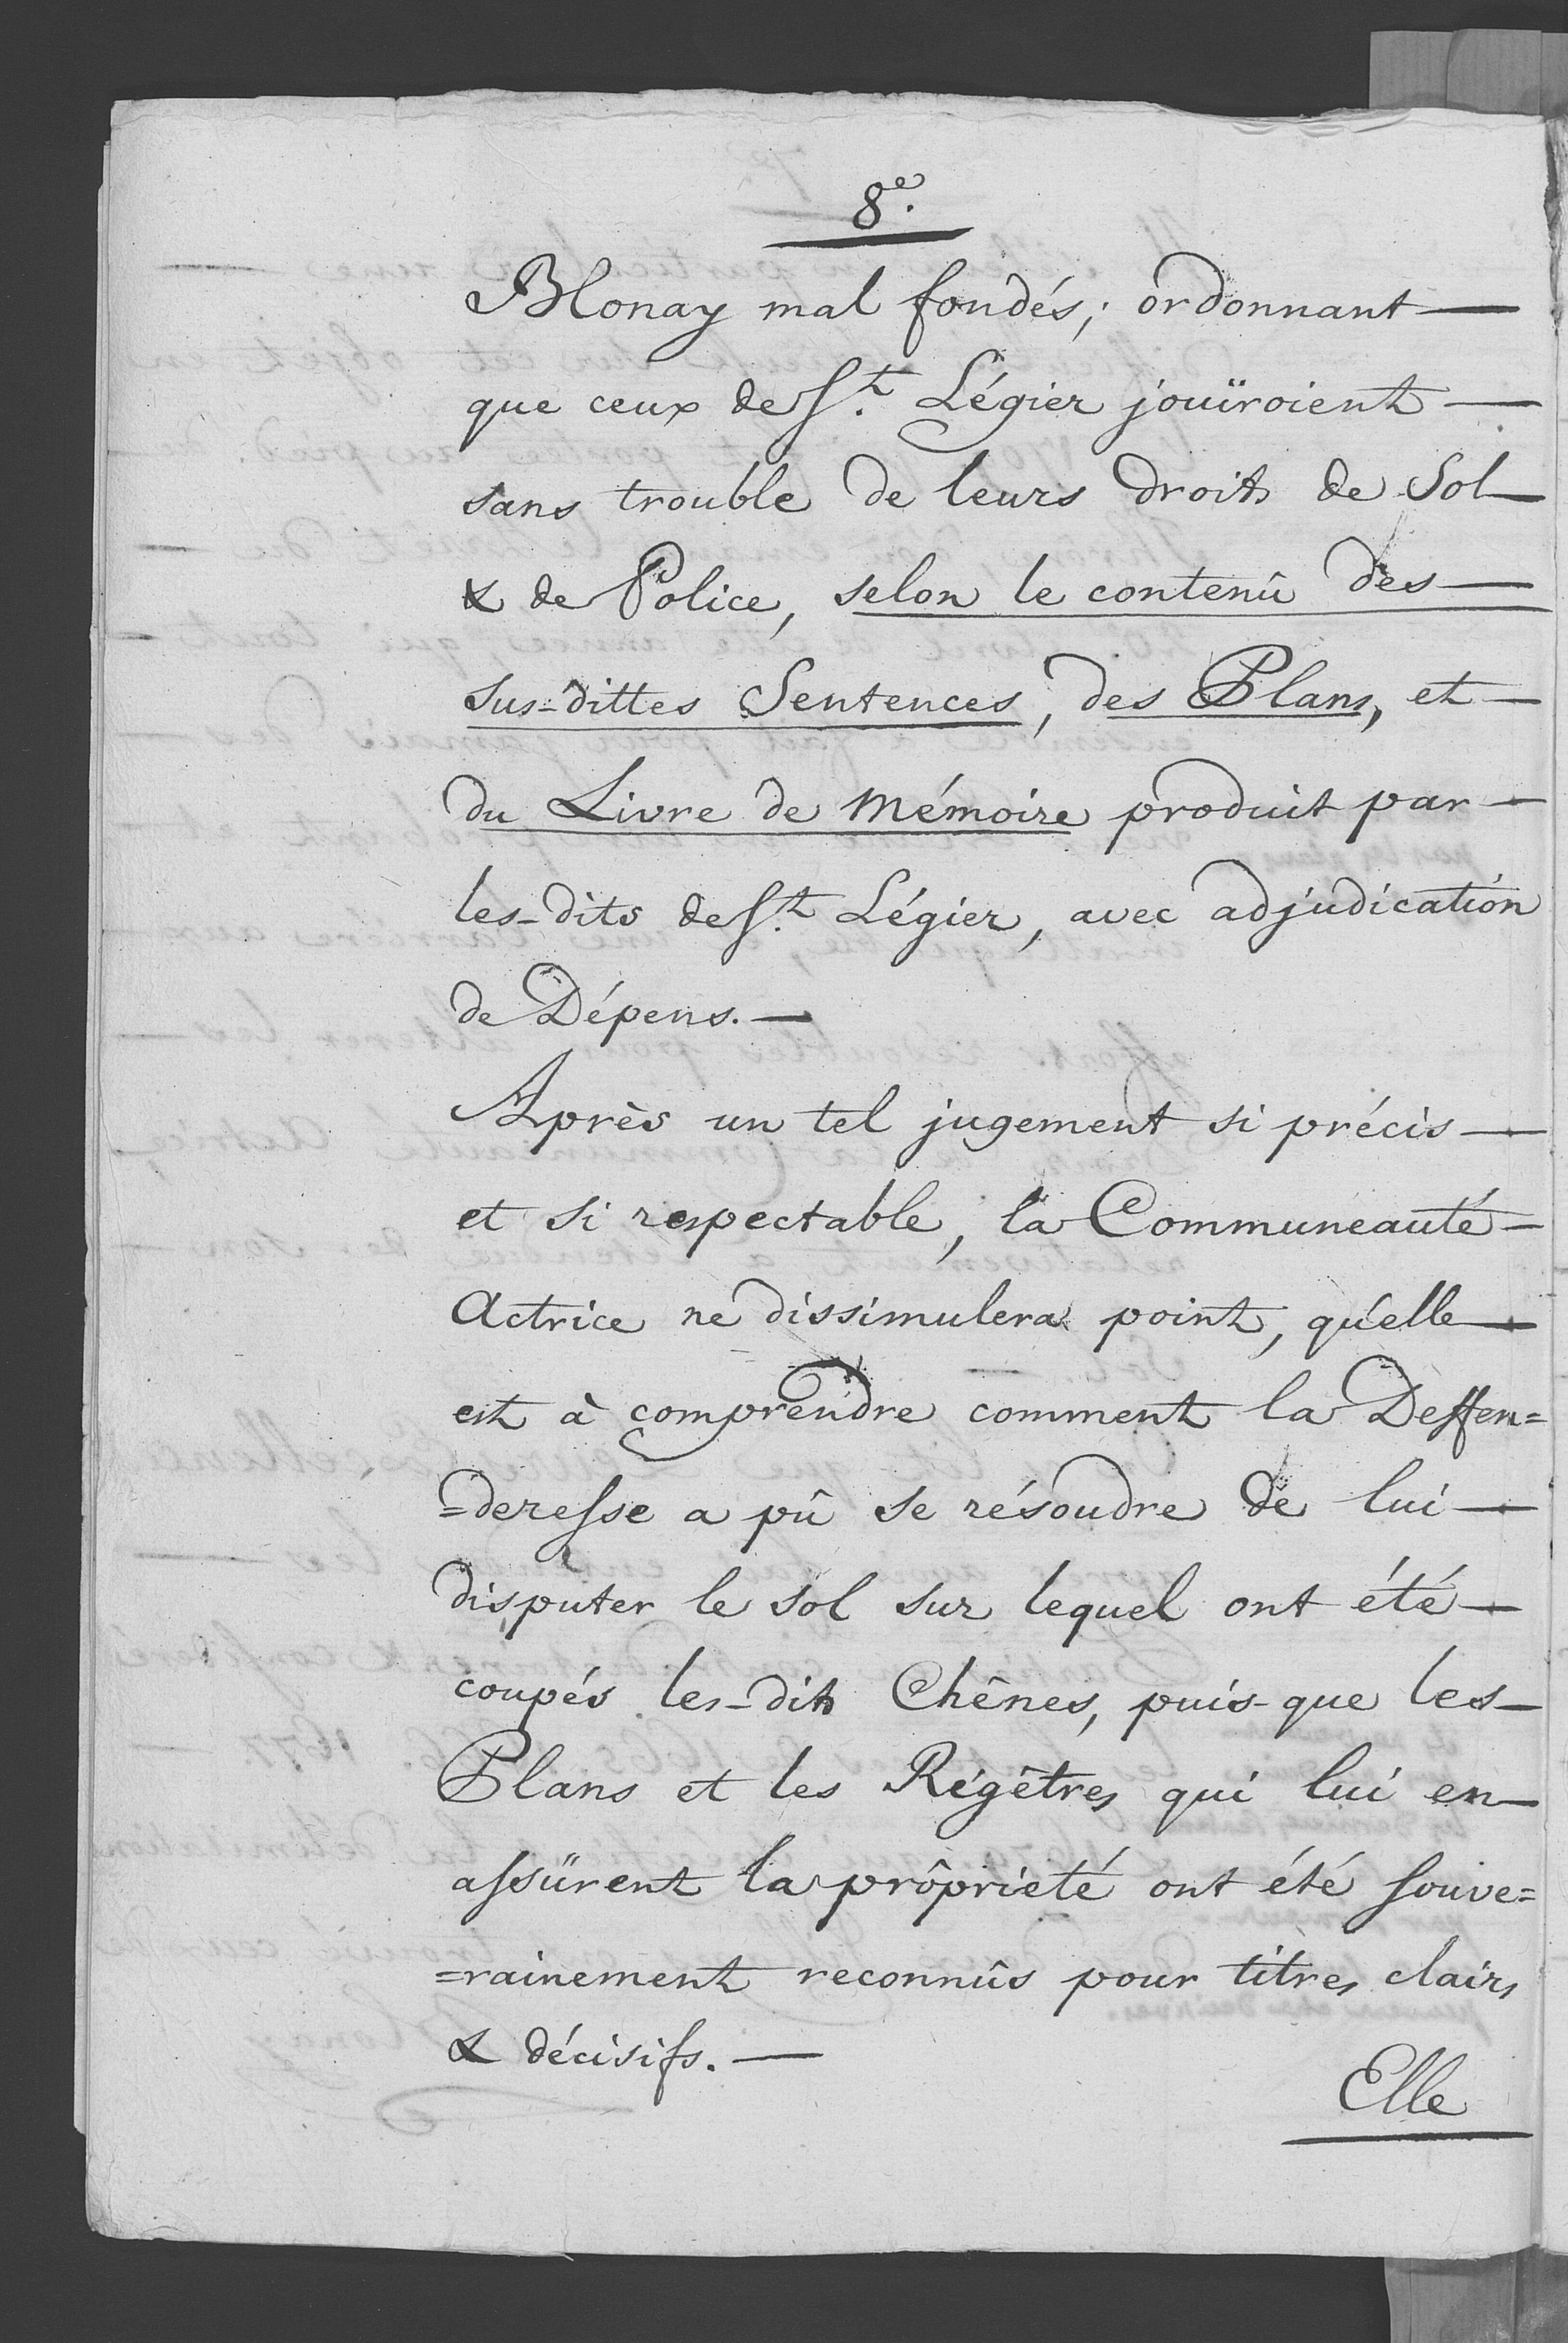 8e.
Blonay mal fondés; ordonnant —
que ceux de St. Légier jouïroient —
sans trouble de leurs droits de Sol —
& de Police, selon le contenû des —
sus-dittes Sentences, des Plans, et —
du Livre de Mémoire produit par —
les-dits de St. Légier, avec adjudication
de Dépens. —
Après un tel jugement si précis —
et si respectable, la Communeauté —
Actrice ne dissimulera point, qu'elle —
est à comprendre comment la Deffen=
=deresse a pû se résoudre de lui —
disputer le sol sur lequel ont été —
coupés les-dits Chênes, puis-que les —
Plans et les Régêtres qui lui en —
assürent la prôpriété ont été souve=
=rainement reconnûs pour titres clairs
& décisifs. —
Elle